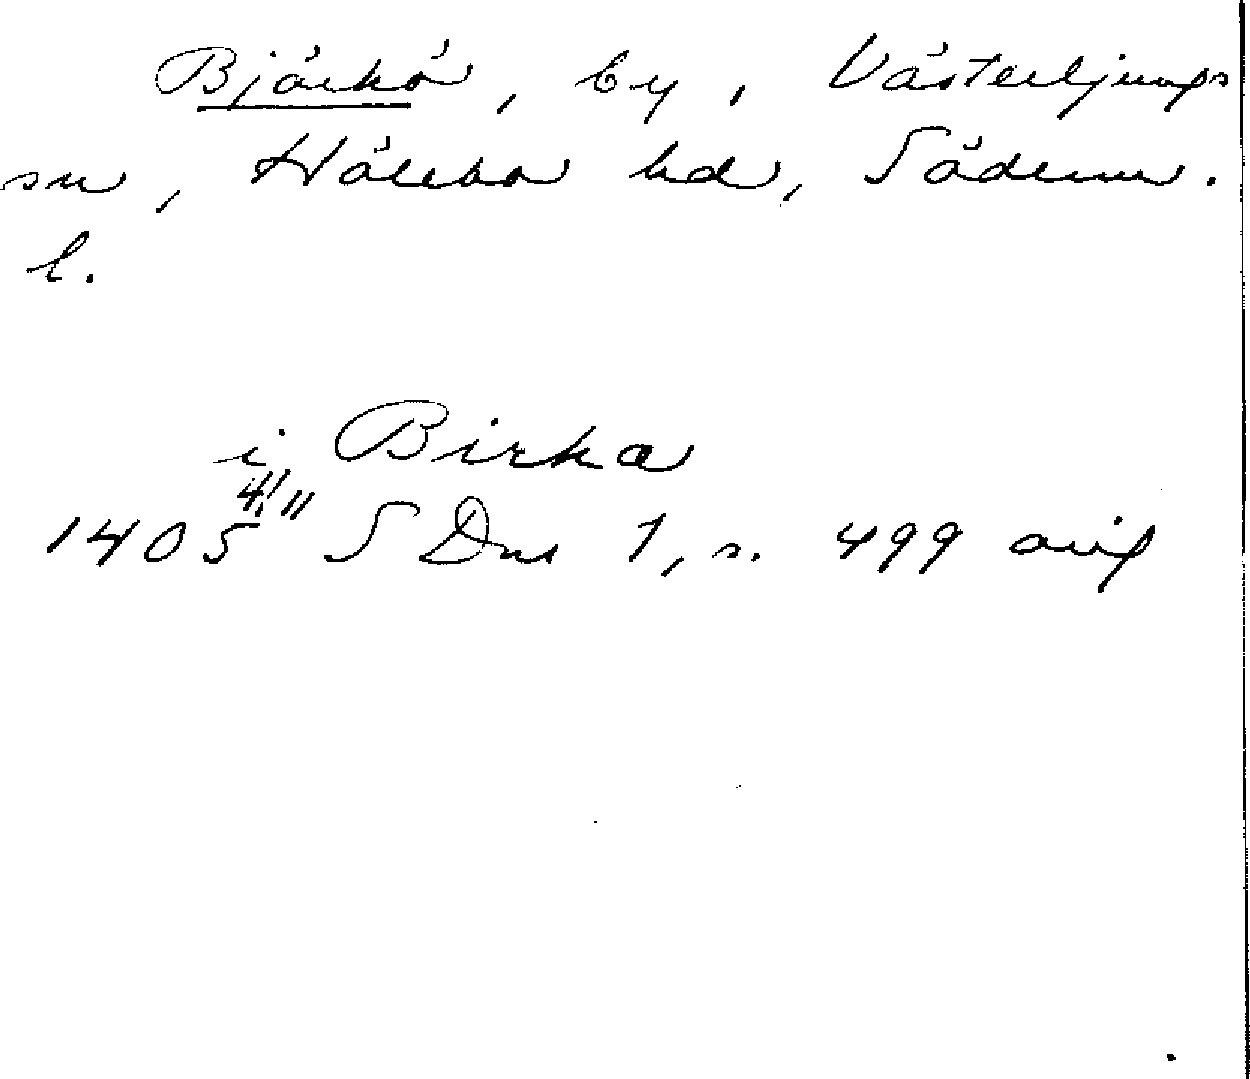 Björkö, by, Västerljungs
sn, Hölebo hd, Söderm.
l.
i Birka
1405 4/11 SDns 1, s. 499 orig